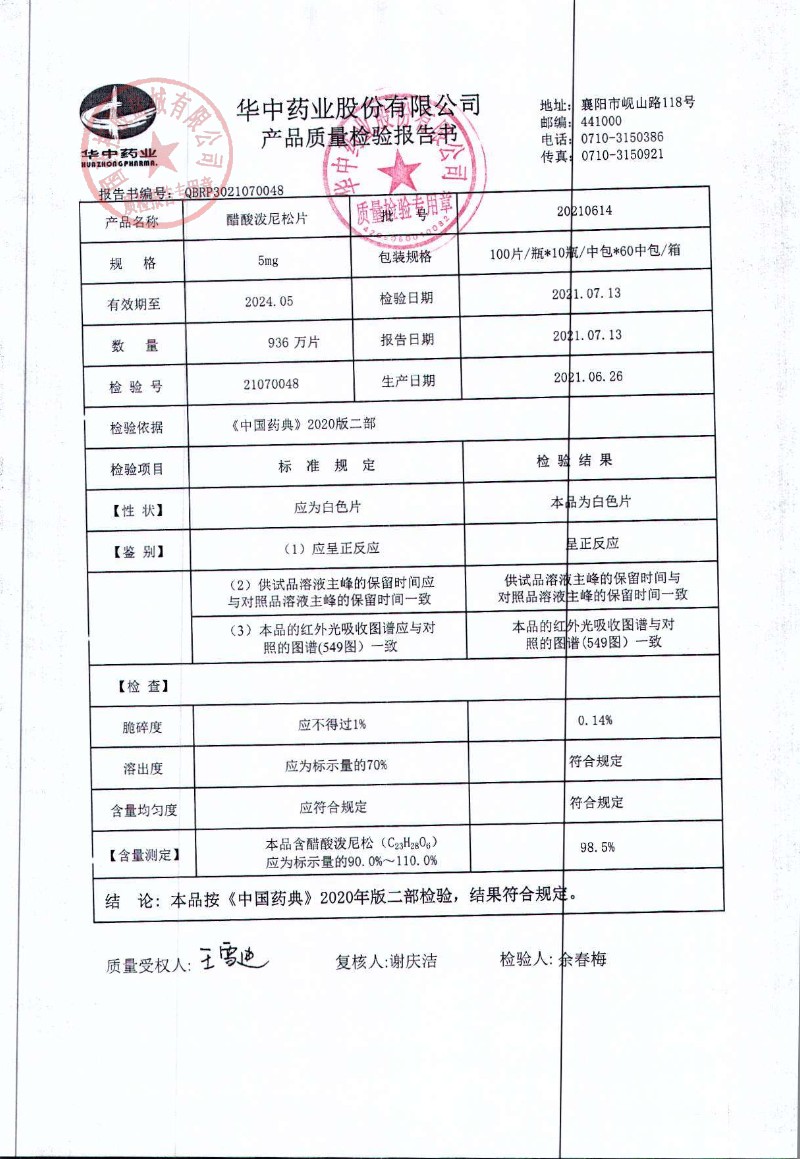 华中药业
HUAZHONGPHARMA.
华中药业股份有限公司
产品质量检验报告书
地址: 襄阳市岘山路118号
邮编: 441000
电话: 0710-3150386
传真: 0710-3150921
质量检验专用章
报告书编号: QBRP3021070048
产品名称 醋酸泼尼松片 批 号 20210614
规 格 5mg 包装规格 100片/瓶*10瓶/中包*60中包/箱
有效期至 2024.05 检验日期 2021.07.13
数 量 936 万片 报告日期 2021.07.13
检 验 号 21070048 生产日期 2021.06.26
检验依据 《中国药典》2020版二部
检验项目 标 准 规 定 检 验 结 果
【性 状】 应为白色片 本品为白色片
【鉴 别】 (1) 应呈正反应 呈正反应
(2) 供试品溶液主峰的保留时间应
与对照品溶液主峰的保留时间一致
供试品溶液主峰的保留时间与
对照品溶液主峰的保留时间一致
(3) 本品的红外光吸收图谱应与对
照的图谱(549图) 一致
本品的红外光吸收图谱与对
照的图谱(549图) 一致
【检 查】
脆碎度 应不得过1% 0.14%
溶出度 应为标示量的70% 符合规定
含量均匀度 应符合规定 符合规定
【含量测定】
本品含醋酸泼尼松 (C₂₃H₂₈O₆)
应为标示量的90.0%~110.0%
98.5%
结 论: 本品按《中国药典》2020年版二部检验, 结果符合规定。
质量受权人: 王雪迪 复核人:谢庆洁 检验人: 余春梅